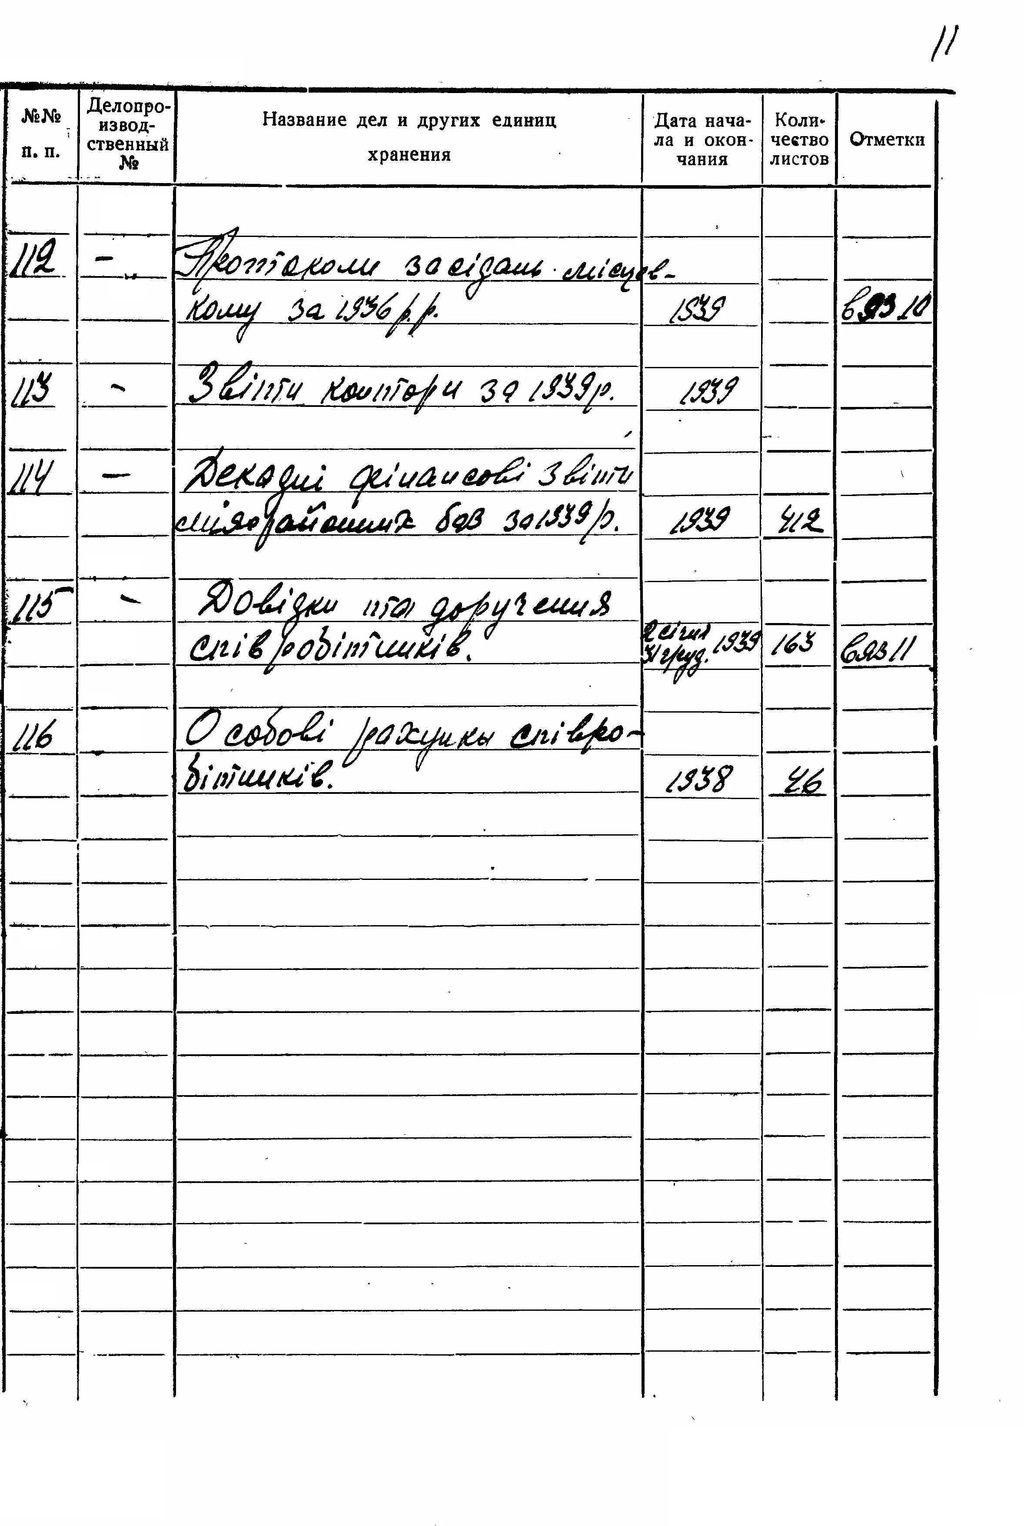 11
№№ п. п.
Делопро-
извод-
ственный
№
Название дел и других единиц
хранения
Дата нача-
ла и окон-
чания
Коли-
чество
листов
Отметки
112 - Протоколи засідань місцев-
кому за 1936 р.р. 1939 вяз 10
113 - Звіти контори за 1939 р. 1939
114 - Декадні фінансові звіти
міжрайонних баз за 1939 р. 1939 412
115 - Довідки та доручення
співробітників. 2 січня 31 груд. 1939 163 вяз 11
116 - Особові рахунки співро-
бітників. 1938 46